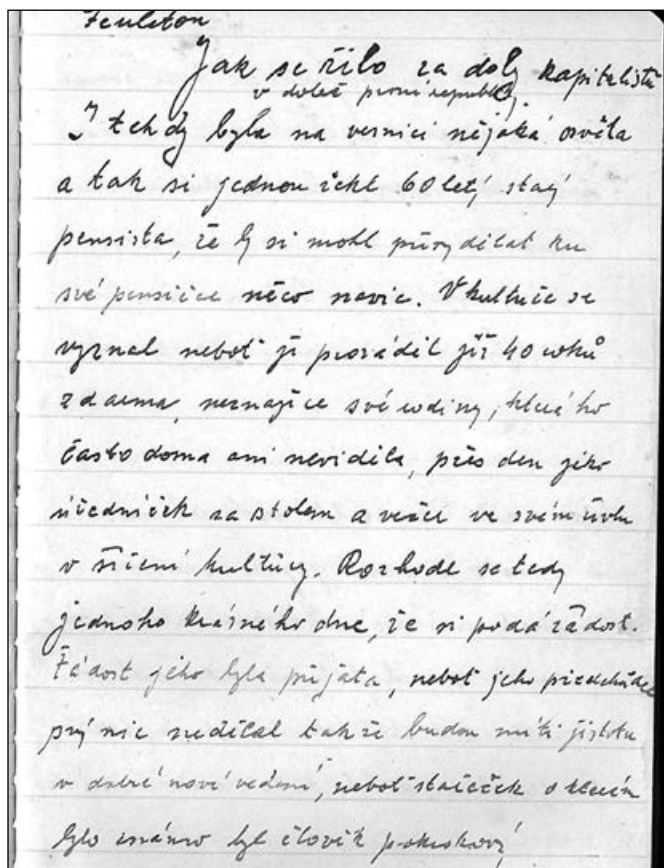 Feuleton
Jak se žilo za doby kapitalistů
v době první republiky.
I tehdy byla na vesnici nějaká osvěta
a tak si jednou řekl 60 letý starý
pensista, že by si mohl přivydělat ku
své pensičce něco navíc. V kultuře se
vyznal neboť ji provádil již 40 roků
zdarma, neznajíce své rodiny, která ho
často doma ani neviděla, přes den jako
úředníček za stolem a večer ve svém
v šíření kultury. Rozhode se tedy
jednoho krásného dne, že si podá žádost.
Žádost jeho byla přijata, neboť jeho předchůdce
prý nic nedělal takže budou míti jistotu
v dobré nové vedení, neboť stařeček o kterém
bylo známo byl člověk pokrokový